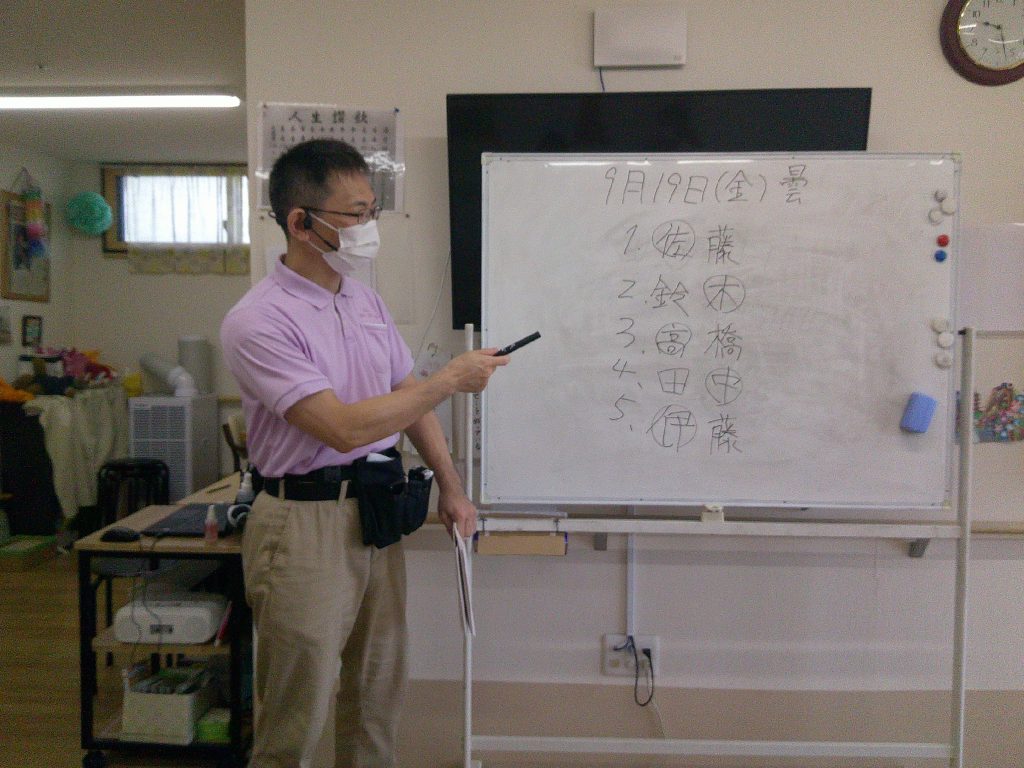 人生讃歌
9月19日(金) 曇
1. 佐藤
2. 鈴木
3. 高橋
4. 田中
5. 伊藤